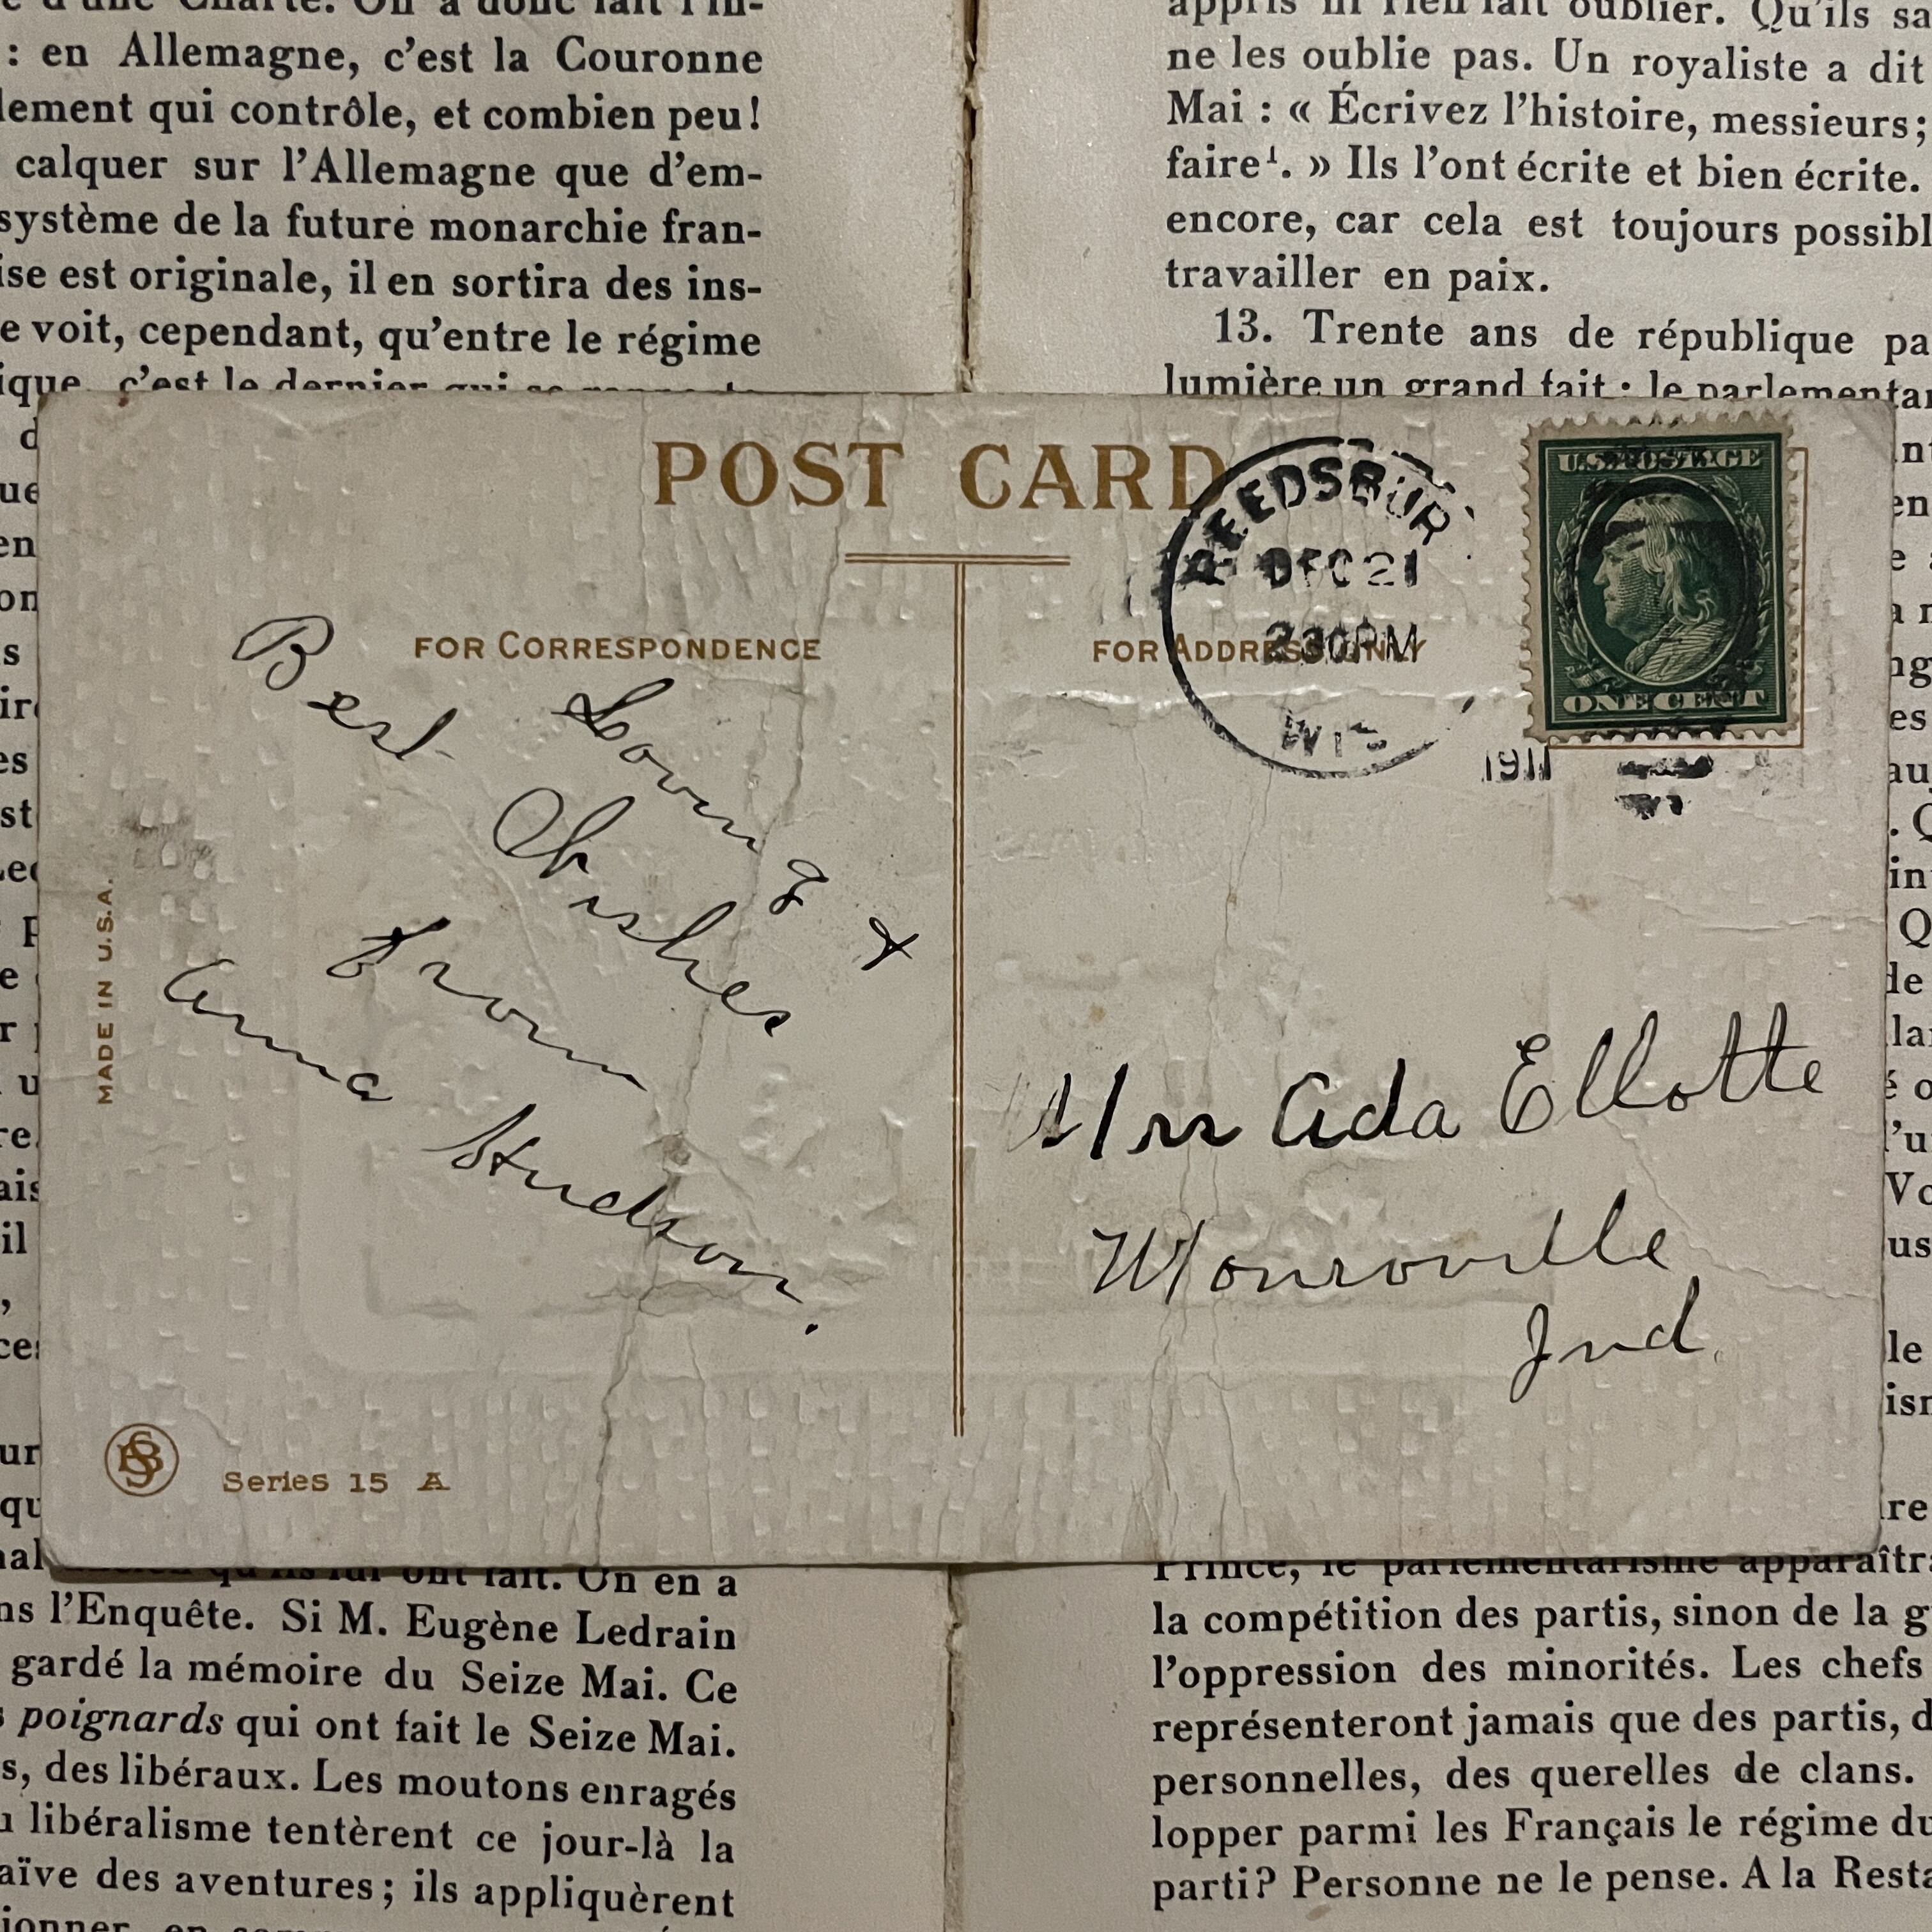 : en Allemagne, c'est la Couronne
lement qui contrôle, et combien peu!
calquer sur l'Allemagne que d'em-
système de la future monarchie fran-
ise est originale, il en sortira des ins-
e voit, cependant, qu'entre le régime
ique, c'est le dernier qui se
appris ni rien fait oublier. Qu'ils sa
ne les oublie pas. Un royaliste a dit
Mai : « Écrivez l'histoire, messieurs;
faire¹. » Ils l'ont écrite et bien écrite.
encore, car cela est toujours possibl
travailler en paix.
13. Trente ans de république pa
lumière un grand fait : le parlementar
POST CARD
FOR CORRESPONDENCE
FOR ADDRESS ONLY
REEDSBUR
DEC 21
230PM
WIS
1911
U.S. POSTAGE
ONE CENT
Best
Loving &
Wishes
from
Anna Hudson.
Mrs Ada Ellotte
Monroville
Ind.
MADE IN U.S.A.
Series 15 A
qu'ils lui ont fait. On en a
ns l'Enquête. Si M. Eugène Ledrain
gardé la mémoire du Seize Mai. Ce
s poignards qui ont fait le Seize Mai.
s, des libéraux. Les moutons enragés
u libéralisme tentèrent ce jour-là la
aïve des aventures; ils appliquèrent
Prince, le parlementarisme apparaîtra
la compétition des partis, sinon de la g
l'oppression des minorités. Les chefs
représenteront jamais que des partis, d
personnelles, des querelles de clans.
lopper parmi les Français le régime du
parti? Personne ne le pense. A la Resta